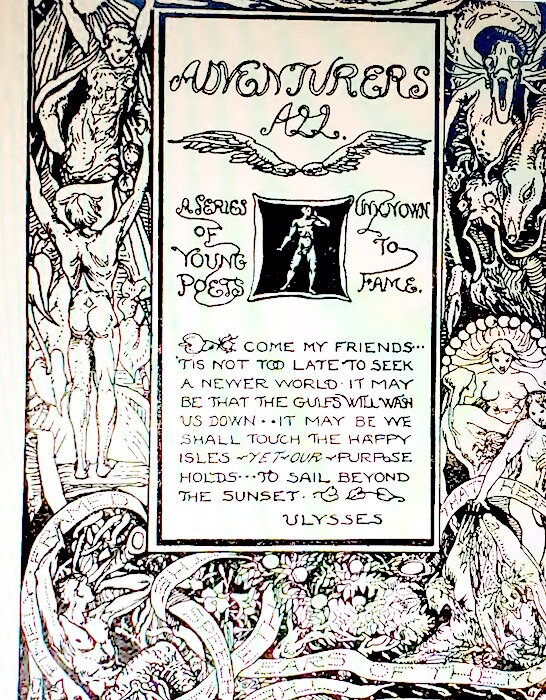 ADVENTURERS
ALL.
A SERIES
OF
YOUNG
POETS
UNKNOWN
TO
FAME.
COME MY FRIENDS...
'TIS NOT TOO LATE TO SEEK
A NEWER WORLD · IT MAY
BE THAT THE GULFS WILL WASH
US DOWN ·· IT MAY BE WE
SHALL TOUCH THE HAPPY
ISLES - YET OUR - PURPOSE
HOLDS ... TO SAIL BEYOND
THE SUNSET.
ULYSSES